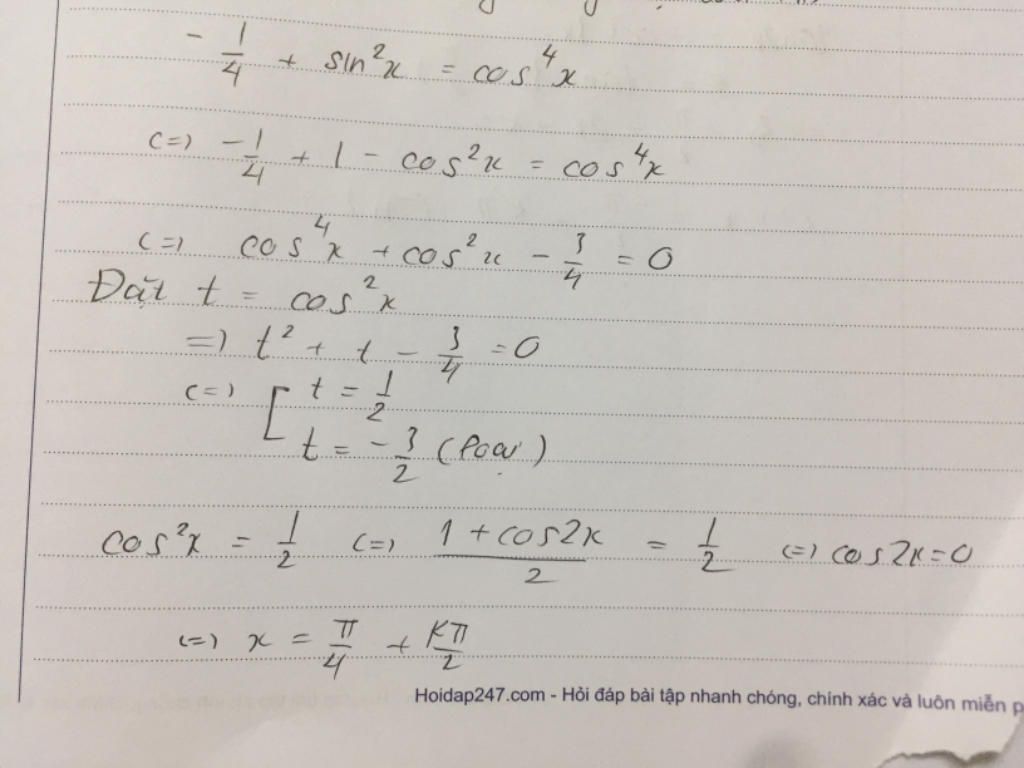 - 1/4 + sin²x = cos⁴x
<=> - 1/4 + 1 - cos²x = cos⁴x
<=> cos⁴x + cos²x - 3/4 = 0
Đặt t = cos²x
=> t² + t - 3/4 = 0
<=> [ t = 1/2
t = - 3/2 (loại)
cos²x = 1/2 <=> (1 + cos2x)/2 = 1/2 <=> cos2x = 0
<=> x = π/4 + kπ/2
Hoidap247.com - Hỏi đáp bài tập nhanh chóng, chính xác và luôn miễn p